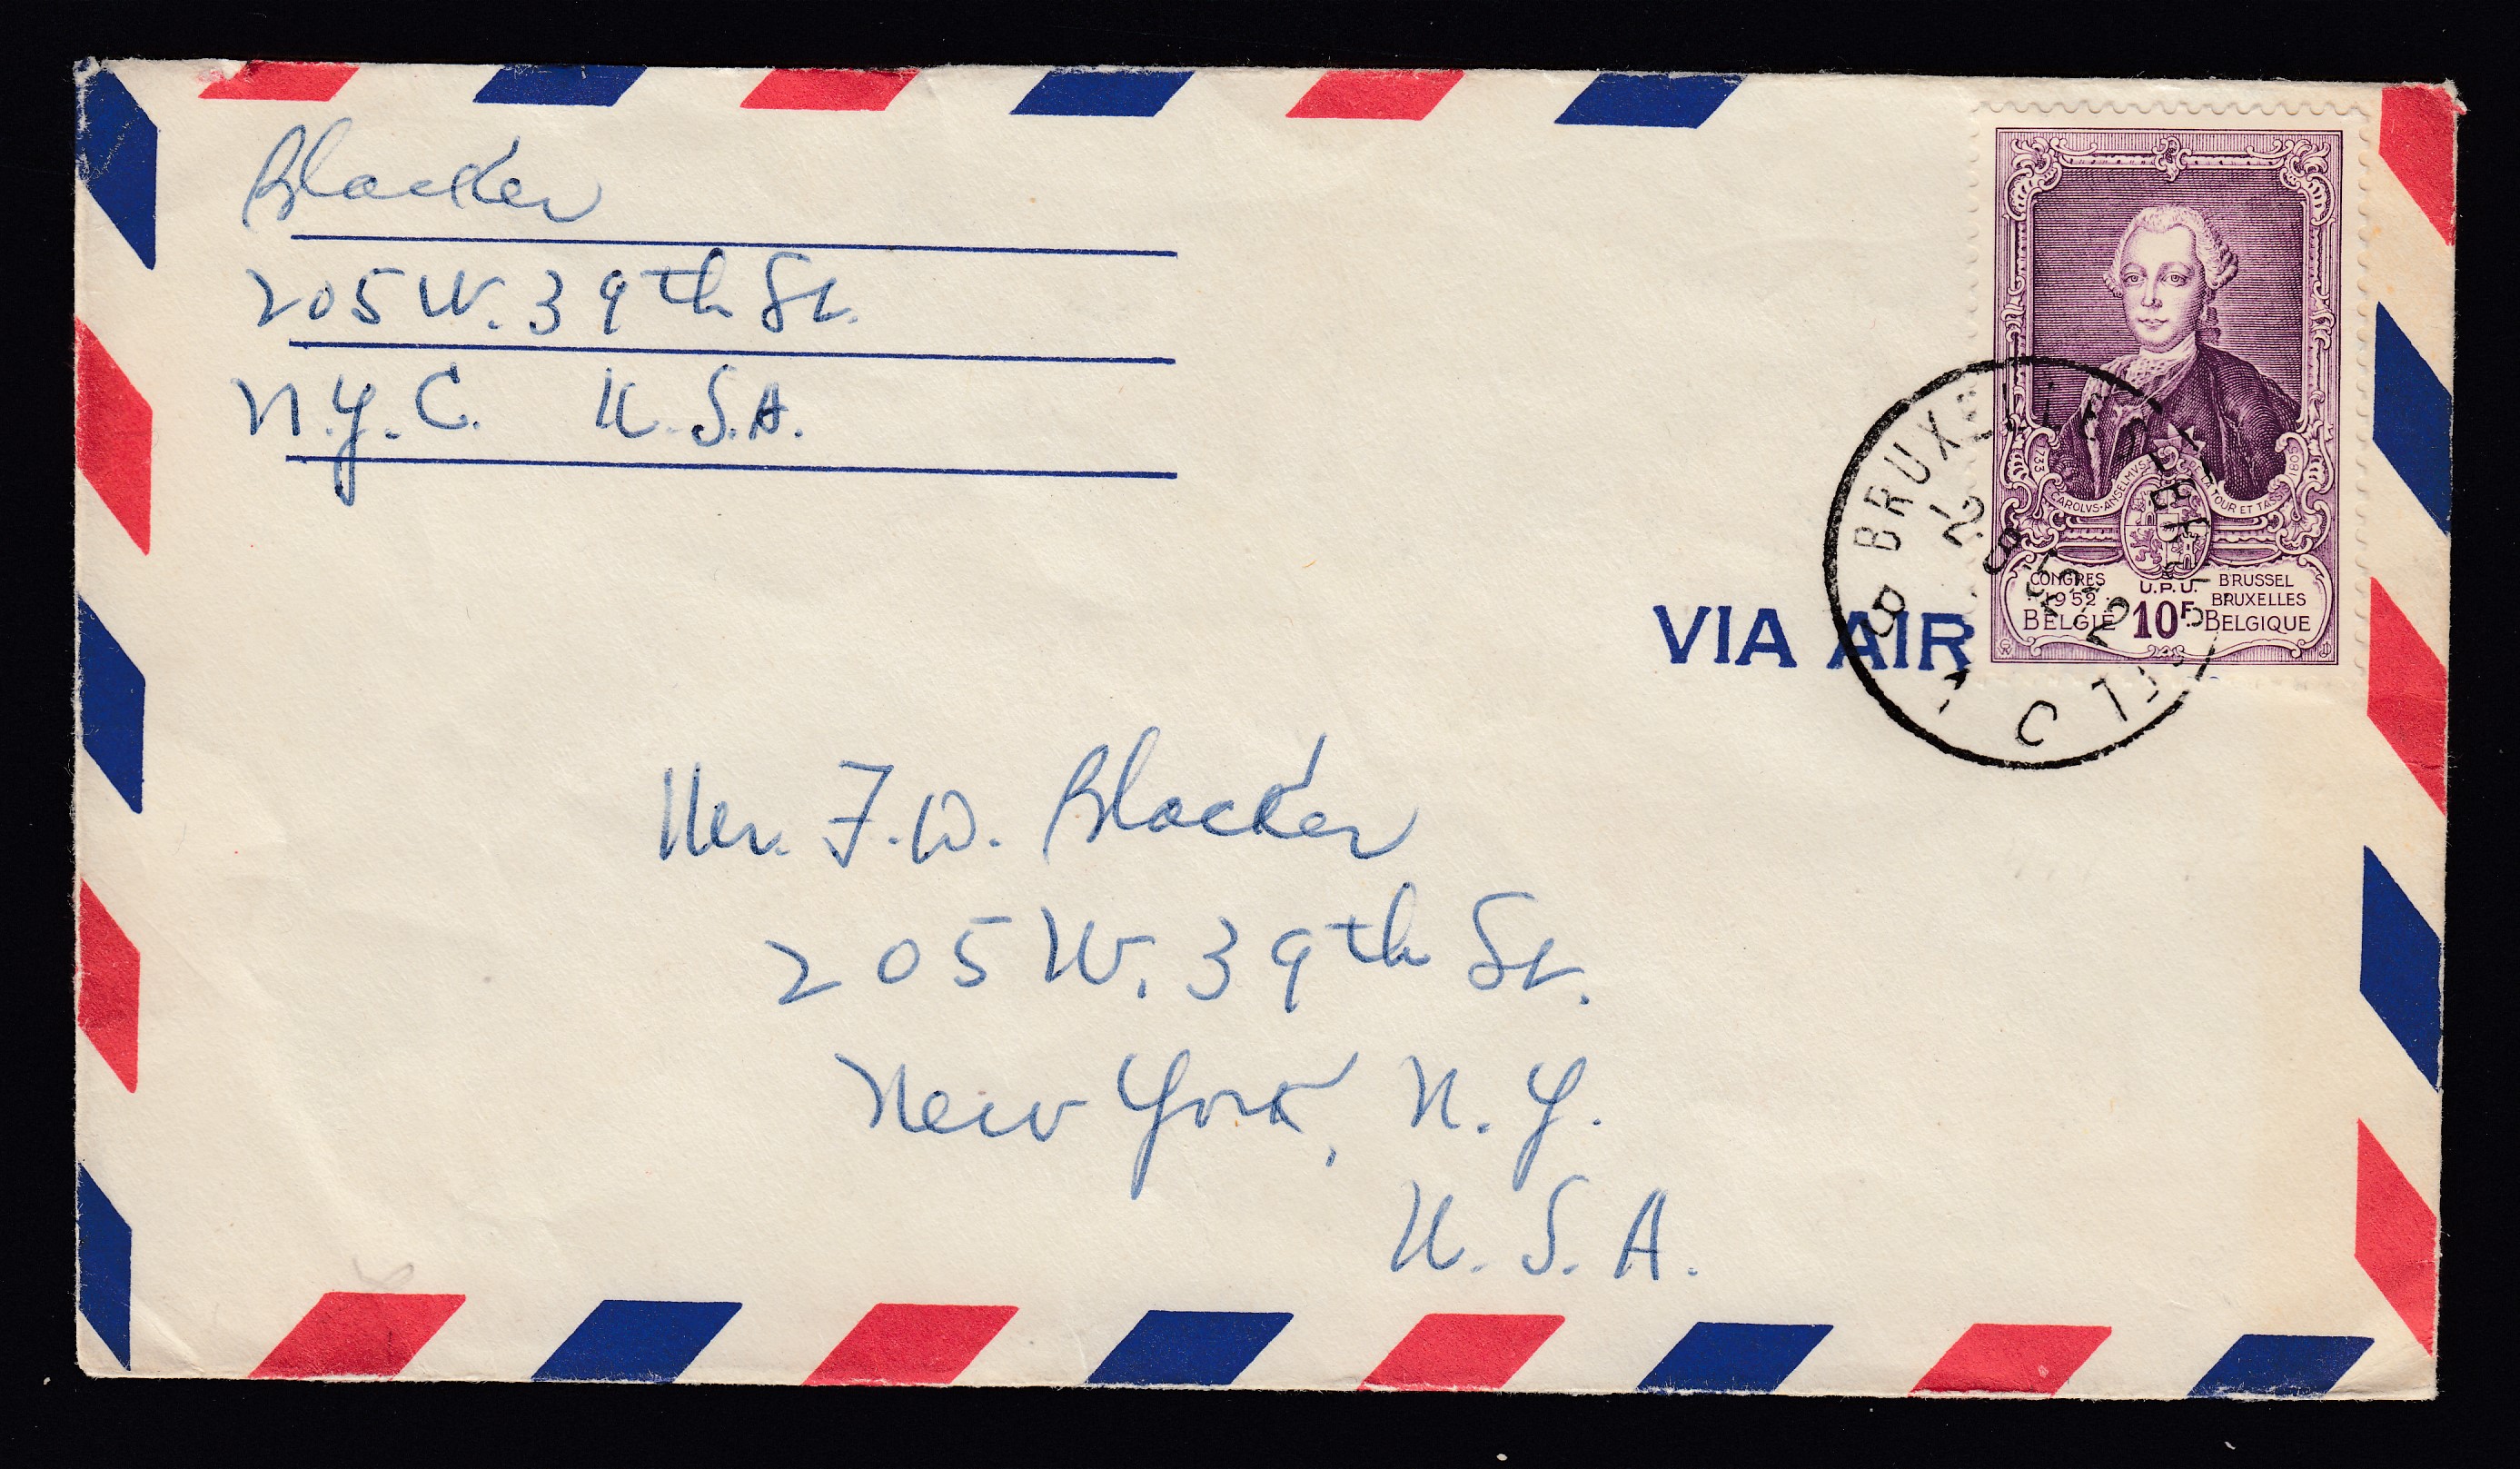 Blacker
205 W. 39th St.
N.Y.C. U.S.A.
1733 CAROLVS·ANSELMVS TOUR ET TASSIS 1805
CONGRES U.P.U. BRUSSEL
1952 BRUXELLES
BELGIE 10F BELGIQUE
BRUXELLES
-2 52
C
VIA AIR
Mr. F.W. Blacker
205 W. 39th St.
New York, N.Y.
U.S.A.